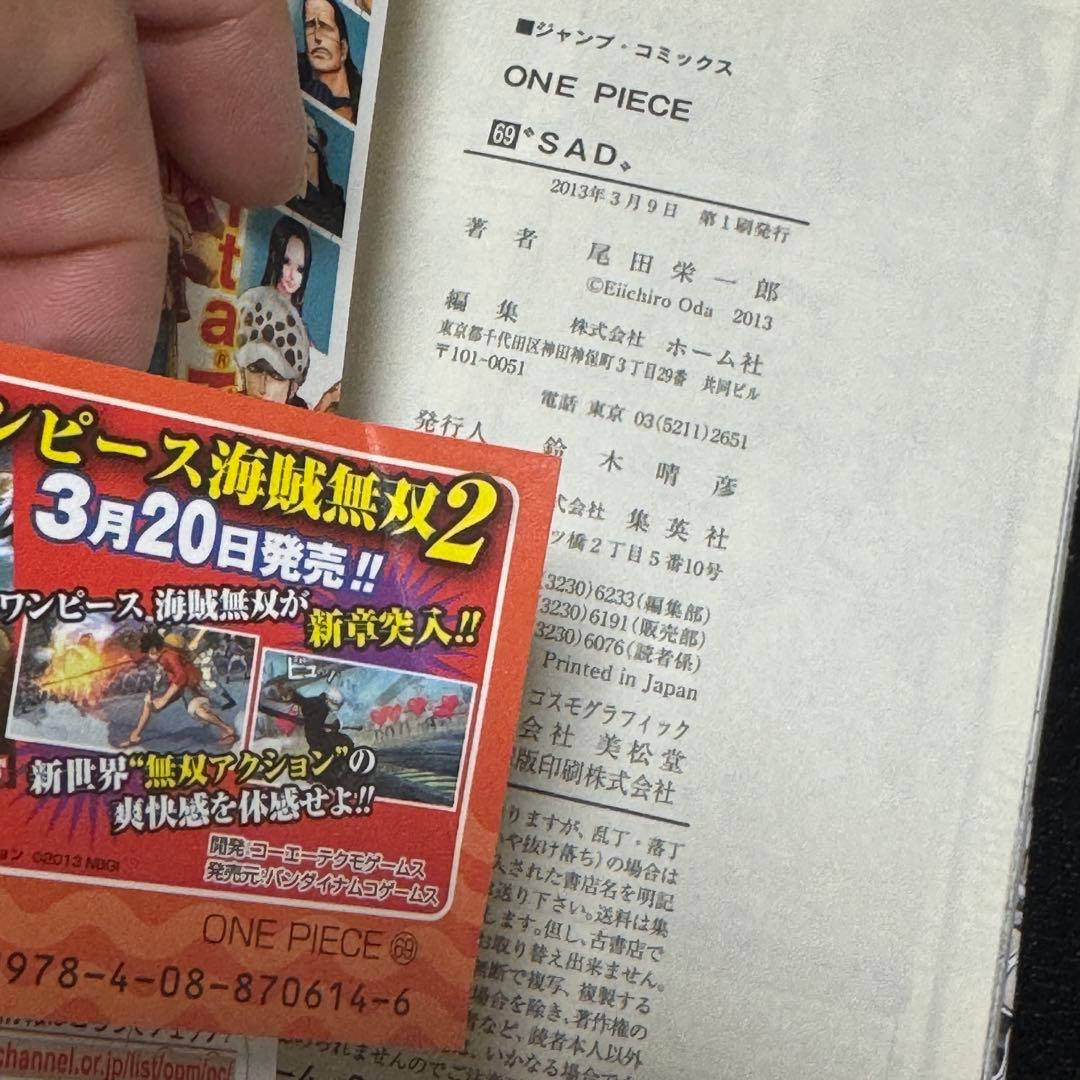 ■ジャンプ・コミックス
ONE PIECE
69 〝SAD〟
2013年3月9日 第1刷発行
著者 尾田栄一郎
©Eiichiro Oda 2013
編集 株式会社 ホーム社
東京都千代田区神田神保町3丁目29番 共同ビル
〒101-0051
電話 東京 03(5211)2651
発行人 鈴木晴彦
式会社 集英社
ツ橋2丁目5番10号
3230)6233(編集部)
3230)6191(販売部)
3230)6076(読者係)
Printed in Japan
コスモグラフィック
会社 美松堂
版印刷株式会社
りますが、乱丁・落丁
や抜け落ち)の場合は
入された書店名を明記
お送り下さい。送料は集
します。但し、古書店で
お取り替え出来ません。
無断で複写、複製する
場合を除き、著作権の
者など、読者本人以外
は、いかなる場合でも
ta
ンピース海賊無双2
3月20日発売!!
ワンピース 海賊無双が
新章突入!!
ビュッ
新世界“無双アクション”の
爽快感を体感せよ!!
ョン ©2013 NBGI
開発:コーエーテクモゲームス
発売元:バンダイナムコゲームス
ONE PIECE 69
978-4-08-870614-6
channel.or.jp/list/opm/pc/